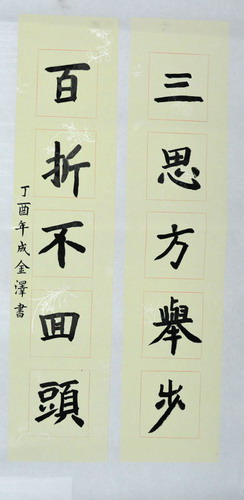 三思方舉步
百折不回頭
丁酉年成金澤書